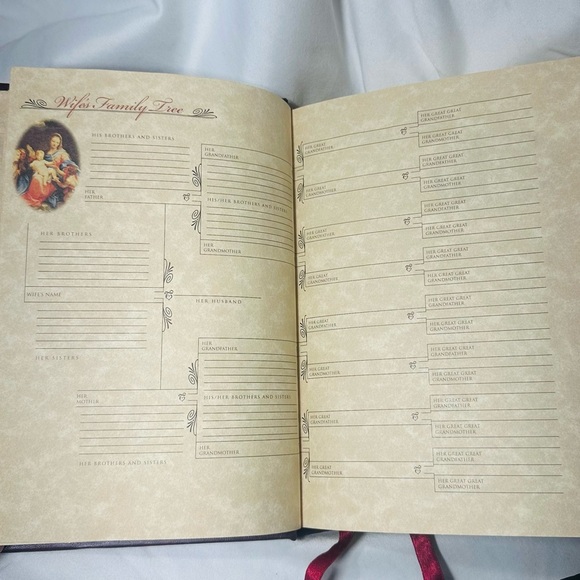 Wife's Family Tree
HER BROTHERS AND SISTERS
HER
FATHER
HER BROTHERS
WIFE'S NAME
HER SISTERS
HER
MOTHER
HER BROTHERS AND SISTERS
HER
GRANDFATHER
HIS/HER BROTHERS AND SISTERS
HER
GRANDMOTHER
HER HUSBAND
HER
GRANDFATHER
HIS/HER BROTHERS AND SISTERS
HER
GRANDMOTHER
HER GREAT
GRANDFATHER
HER GREAT
GRANDMOTHER
HER GREAT
GRANDFATHER
HER GREAT
GRANDMOTHER
HER GREAT
GRANDFATHER
HER GREAT
GRANDMOTHER
HER GREAT
GRANDFATHER
HER GREAT
GRANDMOTHER
HER GREAT GREAT
GRANDFATHER
HER GREAT GREAT
GRANDMOTHER
HER GREAT GREAT
GRANDFATHER
HER GREAT GREAT
GRANDMOTHER
HER GREAT GREAT
GRANDFATHER
HER GREAT GREAT
GRANDMOTHER
HER GREAT GREAT
GRANDFATHER
HER GREAT GREAT
GRANDMOTHER
HER GREAT GREAT
GRANDFATHER
HER GREAT GREAT
GRANDMOTHER
HER GREAT GREAT
GRANDFATHER
HER GREAT GREAT
GRANDMOTHER
HER GREAT GREAT
GRANDFATHER
HER GREAT GREAT
GRANDMOTHER
HER GREAT GREAT
GRANDFATHER
HER GREAT GREAT
GRANDMOTHER